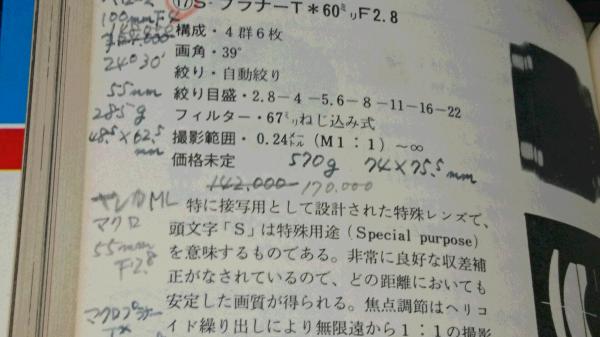 ⑰S-プラナーT＊60ミリF2.8
構成・4群6枚
画角・39°
絞り・自動絞り
絞り目盛・2.8－4－5.6－8－11－16－22
フィルター・67ミリねじ込み式
撮影範囲・0.24メートル（M1：1）～∞
価格未定 570g 74×75.5mm
142.000 170.000
特に接写用として設計された特殊レンズで、
頭文字「S」は特殊用途（Special purpose）
を意味するものである。非常に良好な収差補
正がなされているので、どの距離においても
安定した画質が得られる。焦点調節はヘリコ
イド繰り出しにより無限遠から1：1の撮影
100mmF4
24°30′
55mm
285g
48.5×62.5
mm
ヤシカML
マクロ
55mm
F2.8
マクロプラナー
T*